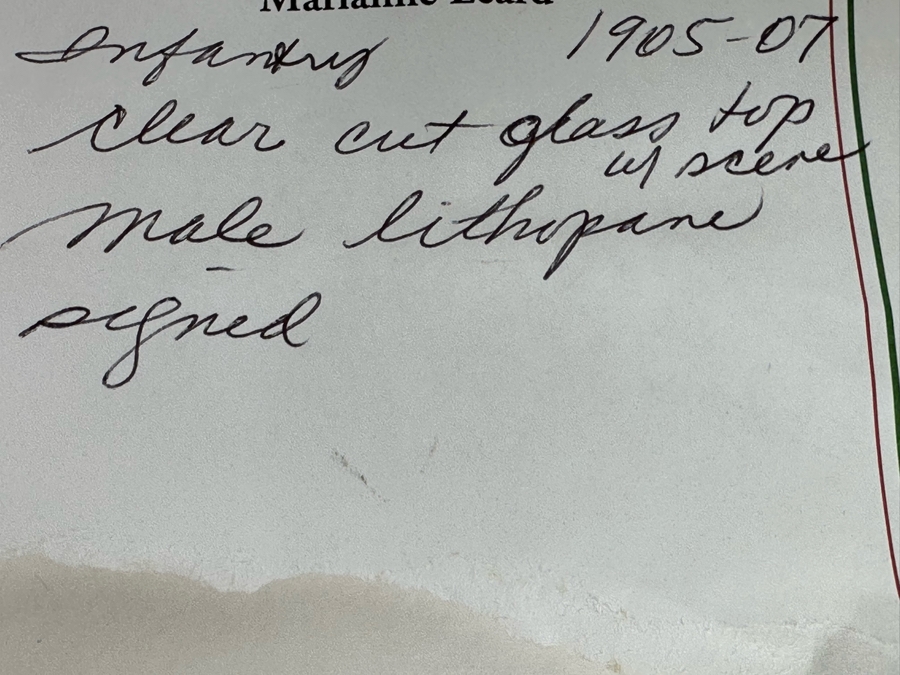 Marianne Leard
Infantry 1905-07
clear cut glass top
w/ scene
male lithopane
signed